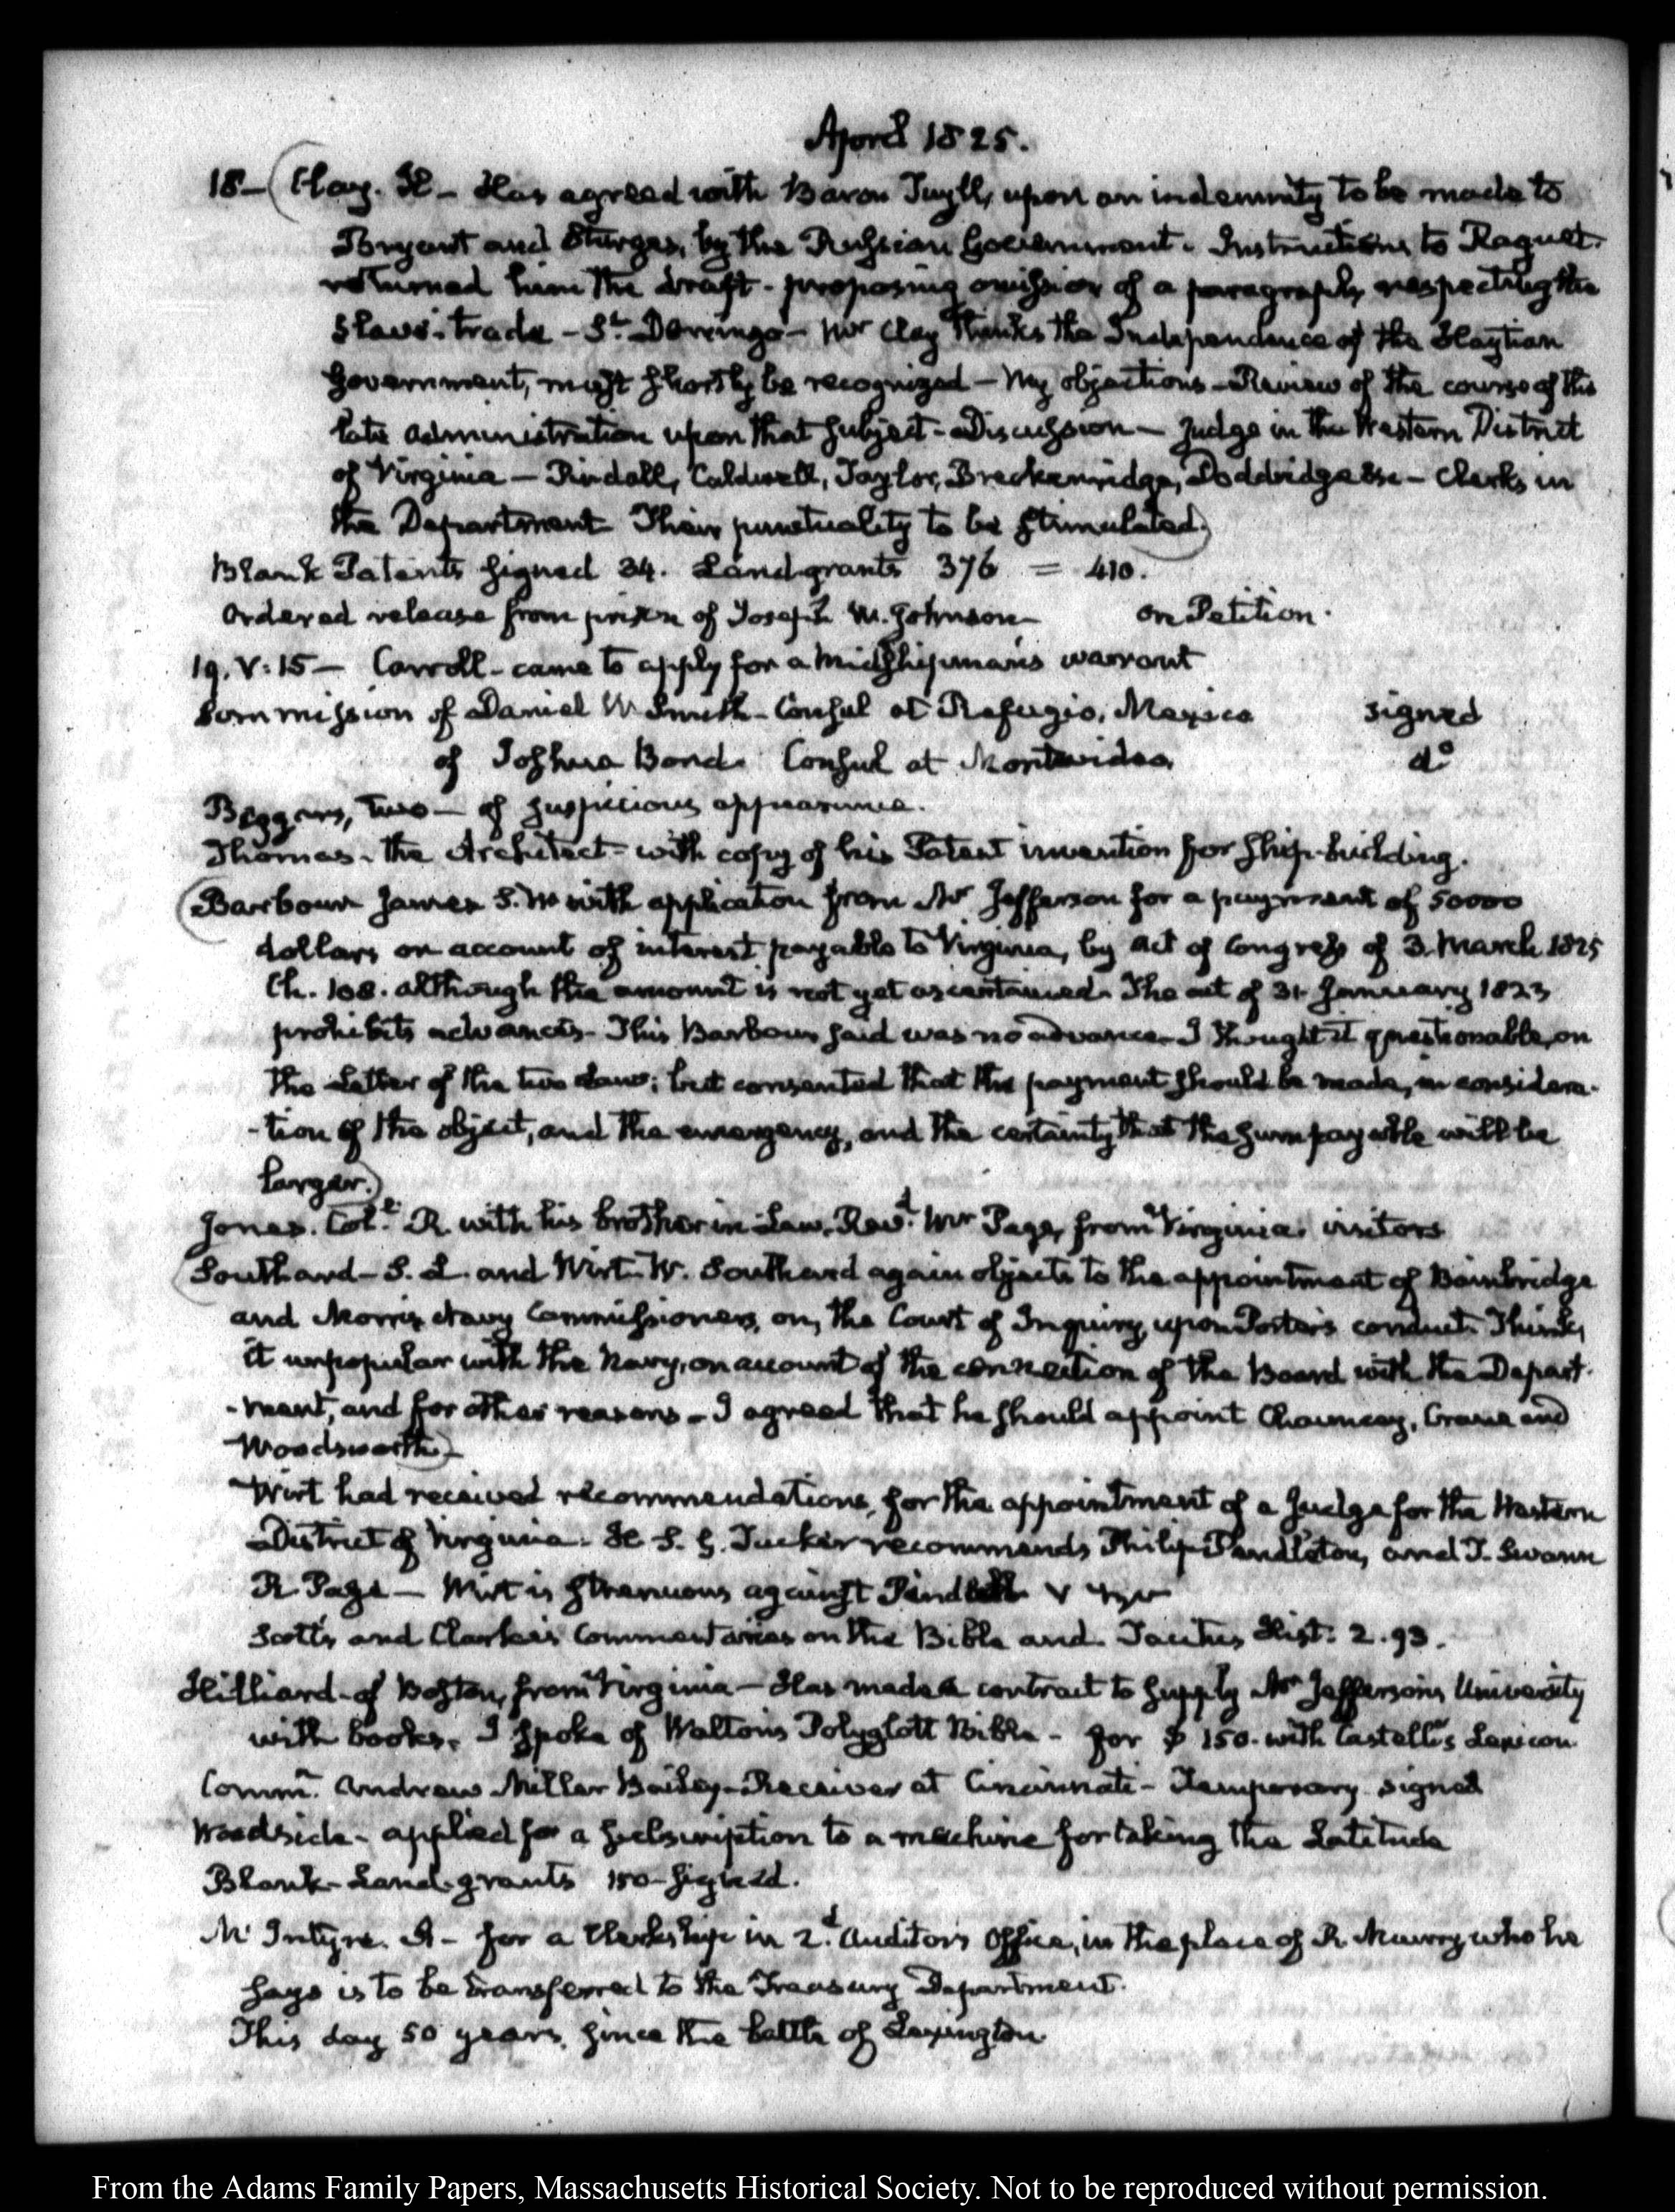 April 1825.
18 – (Clay. H – Has agreed with Baron Tuyll, upon an indemnity to be made to
Bryant and Sturges, by the Russian Government. Instructions to Raguet.
returned him the draft – proposing omission of a paragraph respecting the
Slave-trade – St. Domingo – Mr Clay thinks the Independence of the Haytian
Government, must shortly be recognized – My objections – Review of the course of the
late administration upon that subject – Discussion – Judge in the Western District
of Virginia – Caldwell, Taylor, Breckenridge, Doddridge &c – Clerks in
the Department Their punctuality to be stimulated)
Blank Patents signed 34. Land grants 376 = 410.
Ordered release from prison of Joseph W. Johnson – on Petition.
19. V: 15 – Carroll – came to apply for a Midshipman's warrant
Commission of Daniel W Smith – Consul at Refugio, Mexico signed
of Joshua Bond. Consul at Montevideo. do
Beggars, two – of suspicious appearance.
Thomas – the Architect – with copy of his Patent invention for ship-building.
(Barbour James S. with application from Mr Jefferson for a payment of 50000
dollars on account of interest payable to Virginia, by act of Congress of 3. March 1825
Ch. 108. although the amount is not yet ascertained. The act of 31 January 1823
prohibits advances – This Barbour said was no advance – I thought it questionable, on
the Letter of the two laws; but consented that the payment should be made, in considera-
-tion of the object, and the emergency, and the certainty that the sum payable will be
larger.)
Jones. Coll. R. with his brother in Law, Revd. Mr Page, from Virginia. visitors
(Southard – S. L. and Wirt W. Southard again objects to the appointment of Bainbridge
and Morris Navy Commissioners, on, the Court of Inquiry, upon Porter's conduct. Thinks
it unpopular with the Navy, on account of the connection of the Board with the Depart-
-ment, and for other reasons – I agreed that he should appoint Chauncey, Crane and
Woodsworth) –
Wirt had received recommendations, for the appointment of a Judge for the Western
District of Virginia. H. S. G. Tucker recommends Philip Pendleton, and T. Swann
R Page – Wirt is strenuous against
Scott's and Clarke's Commentaries on the Bible and Tacitus Hist: 2. 93.
Hilliard – of Boston, from Virginia – Has made a contract to supply Mr Jefferson's University
with books. I spoke of Walton's Polyglott Bible – for $ 150. with Castell's Lexicon.
Comm. Andrew Miller Bailey – Receiver at Cincinnati – Temporary signed
Woodside – applied for a subscription to a machine for taking the Latitude
Blank – Land-grants 150 – signed.
Mc Intyre. A – for a Clerkship in 2d. Auditor's Office, in the place of R. Maury who he
says is to be transferred to the Treasury Department.
This day 50 years, since the battle of Lexington
From the Adams Family Papers, Massachusetts Historical Society. Not to be reproduced without permission.